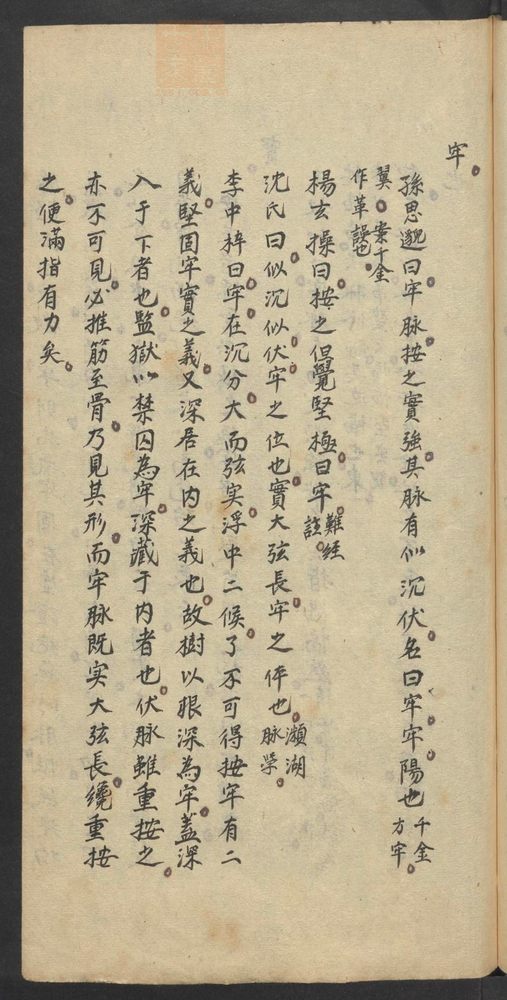 牢
孫思邈曰牢脉按之實強其脉有似沉伏名曰牢牢陽也千金方牢
翼案千金作革誤也
楊玄操曰按之但覺堅極曰牢難経註
沈氏曰似沉似伏牢之位也實大弦長牢之体也瀕湖脉学
李中梓曰牢在沉分大而弦实浮中二候了不可得按牢有二
義堅固牢實之義又深居在内之義也故樹以根深為牢盖深
入于下者也監獄以禁囚為牢深藏于内者也伏脉雖重按之
亦不可見必推筋至骨乃見其形而牢脉既实大弦長纔重按
之便滿指有力矣